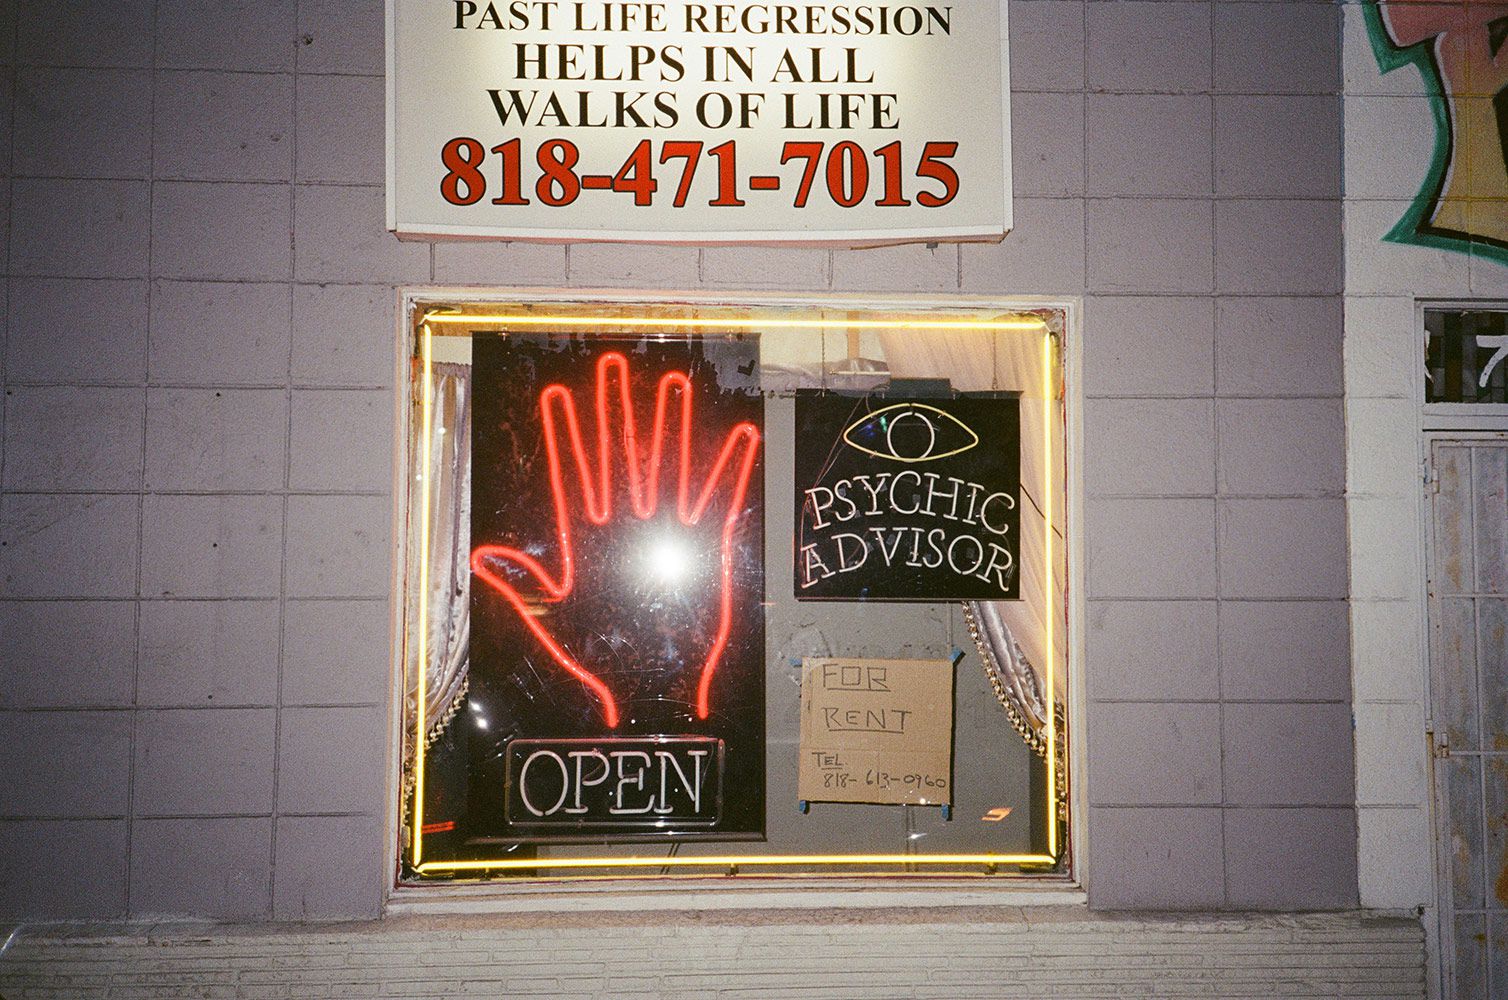 PAST LIFE REGRESSION
HELPS IN ALL
WALKS OF LIFE
818-471-7015
PSYCHIC
ADVISOR
OPEN
FOR
RENT
TEL.
818-613-0960
7